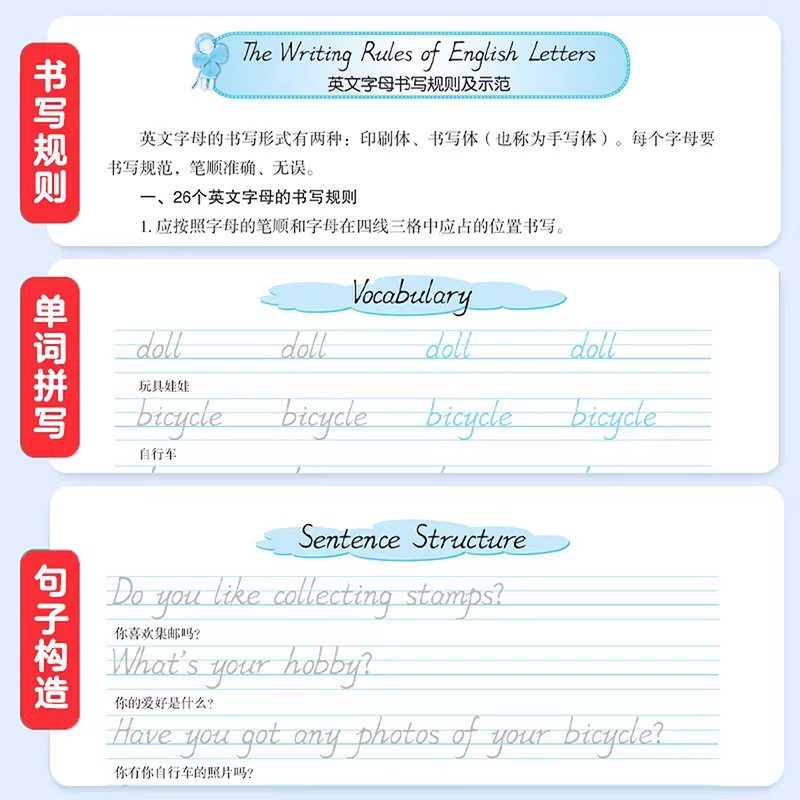 书写规则
The Writing Rules of English Letters
英文字母书写规则及示范
英文字母的书写形式有两种：印刷体、书写体（也称为手写体）。每个字母要
书写规范，笔顺准确、无误。
一、26个英文字母的书写规则
1. 应按照字母的笔顺和字母在四线三格中应占的位置书写。
单词拼写
Vocabulary
doll doll doll doll
玩具娃娃
bicycle bicycle bicycle bicycle
自行车
句子构造
Sentence Structure
Do you like collecting stamps?
你喜欢集邮吗?
What's your hobby?
你的爱好是什么?
Have you got any photos of your bicycle?
你有你自行车的照片吗?